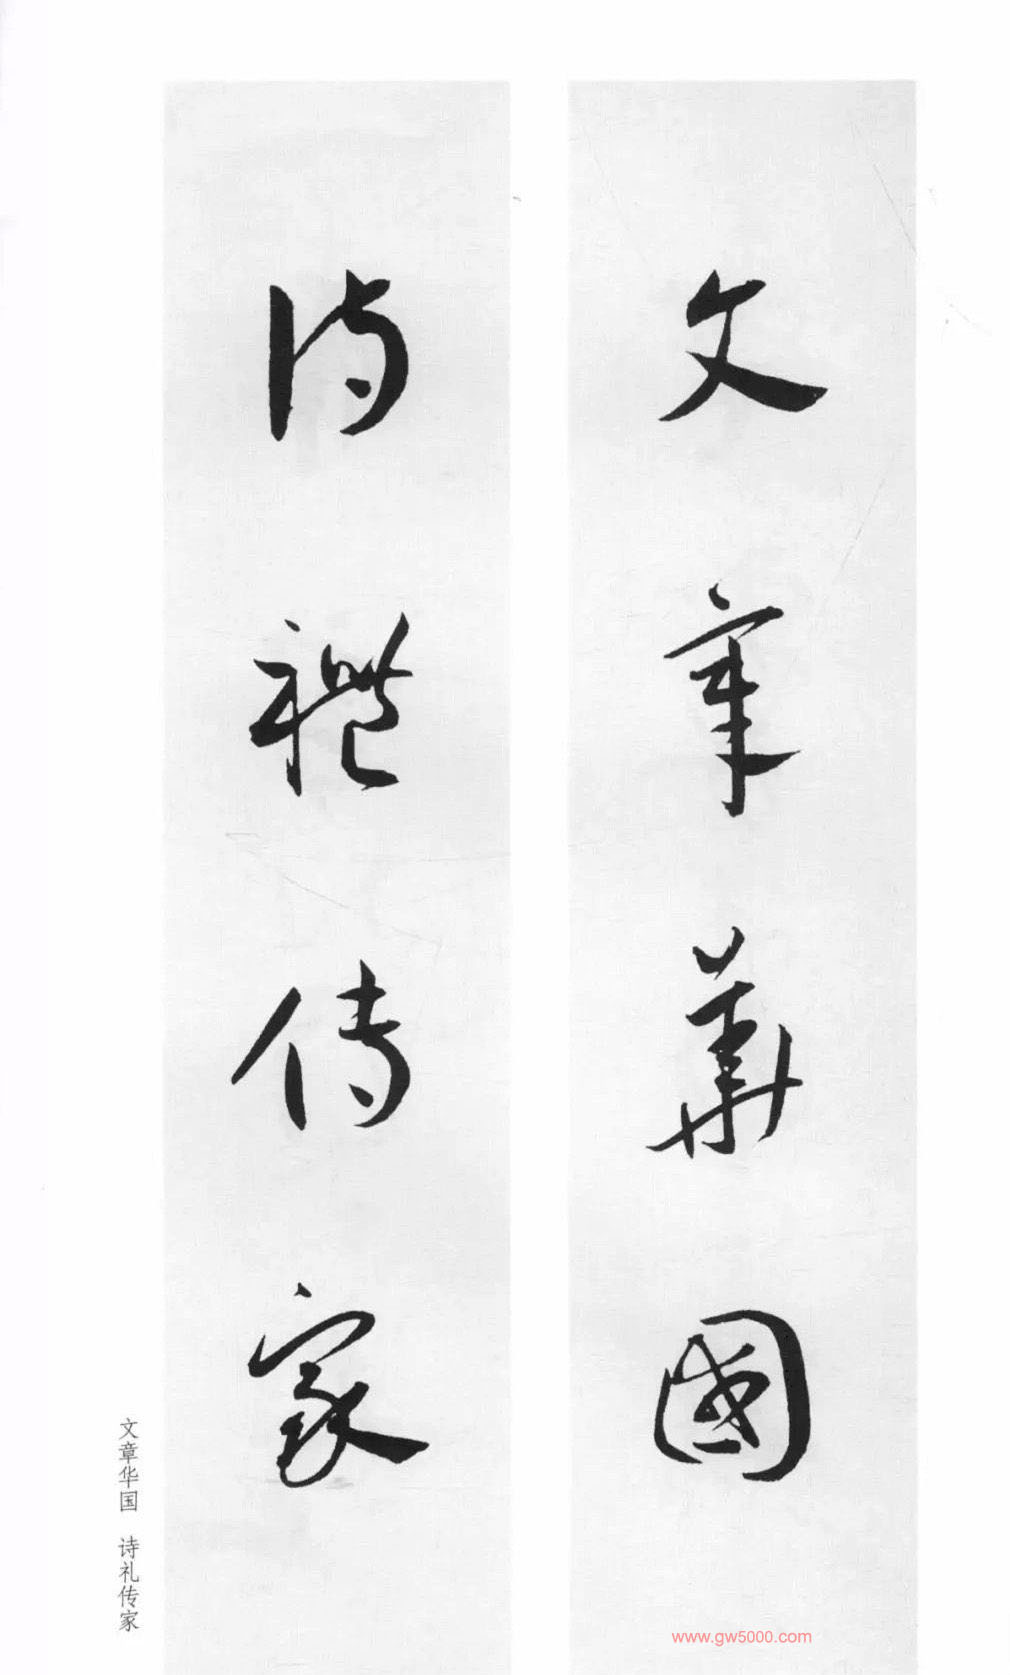 文章華國
詩禮傳家
文章华国 诗礼传家
www.gw5000.com